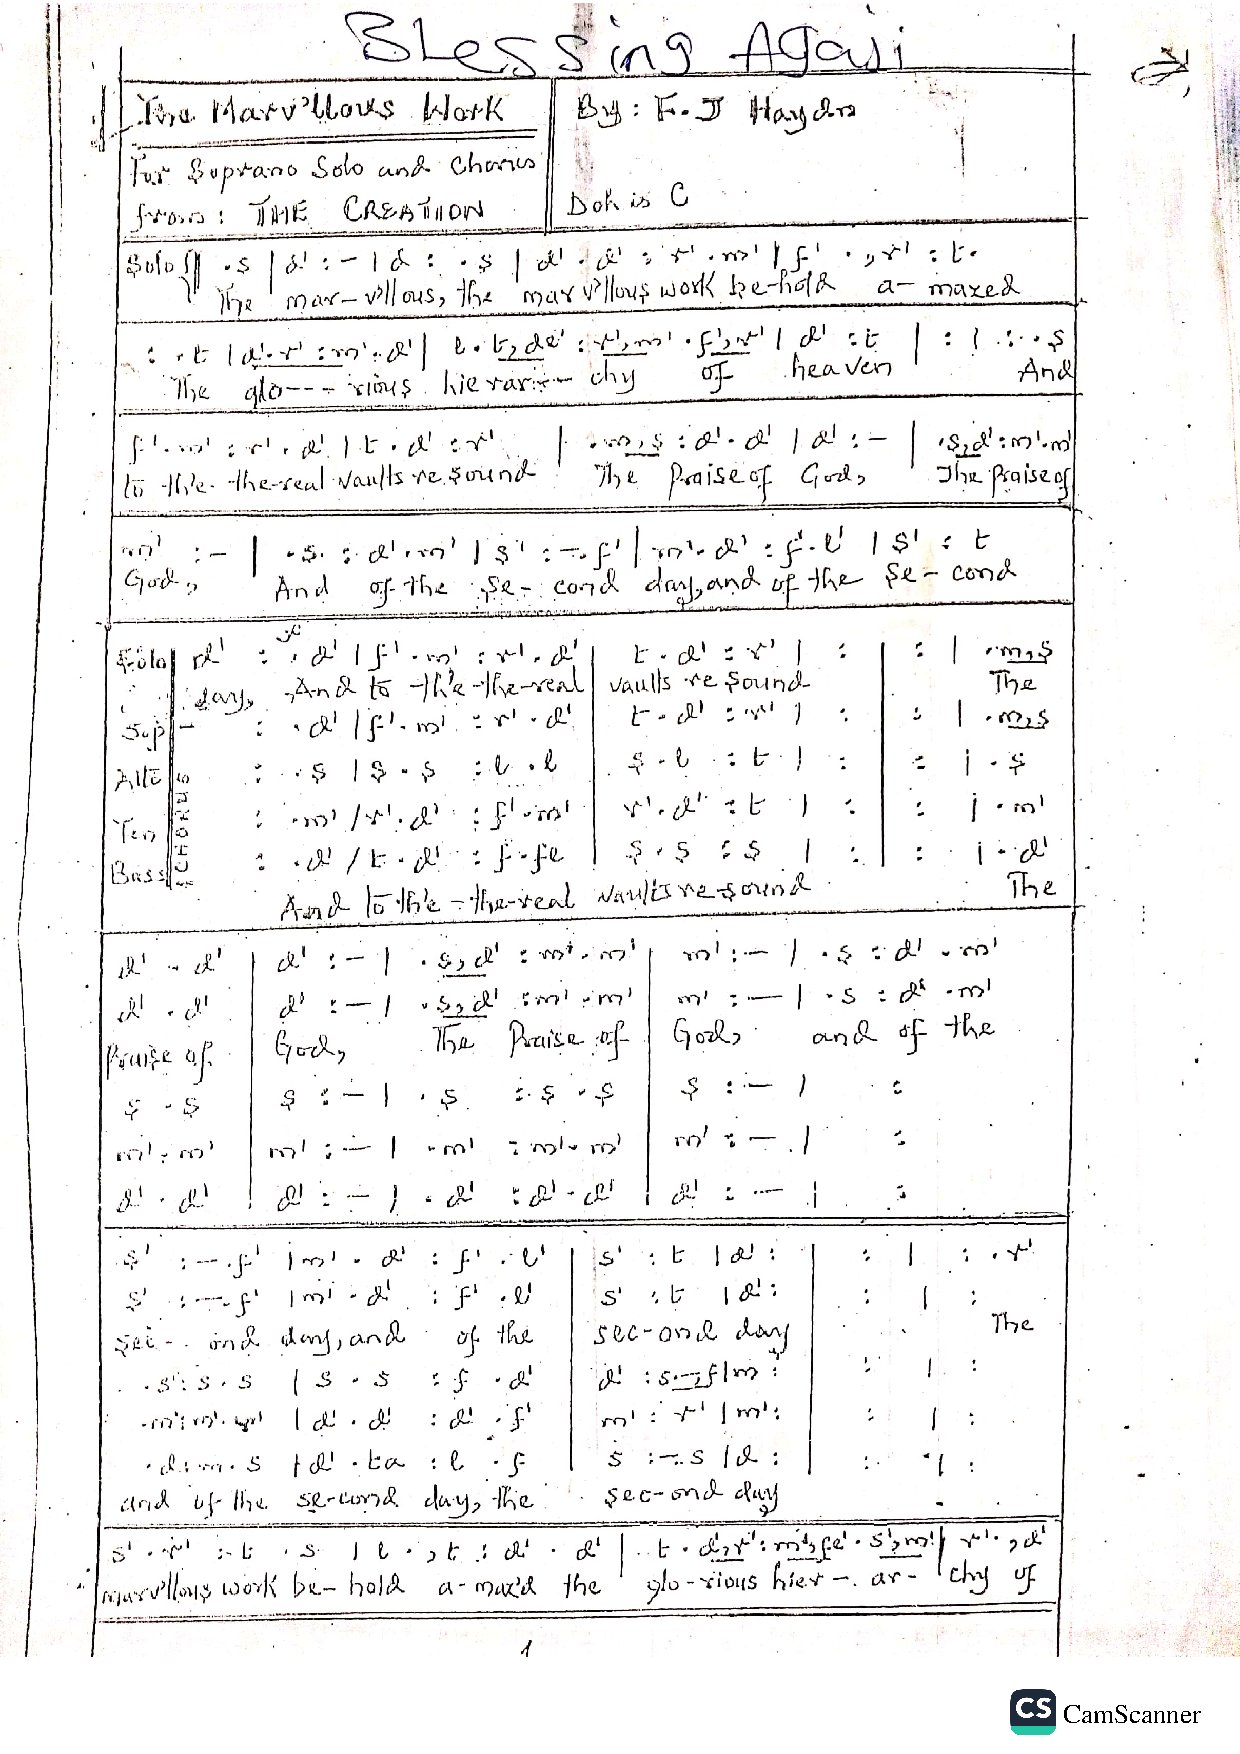 Blessing Agasi
The Marv'llous Work
By: F.J Haydn
For Soprano Solo and Chorus
from: THE CREATION
Doh is C
Solo | .s | d' : – | d : . s | d' . d' : r' . m' | f' . , r' : t .
The mar-v'llous, the marv'llous work be-hold a-mazed
: . t | d' . r' : m' . d' | l . t, de' : r', m' . f', r' | d' : t | : | : . s
The glo--- rious hierar-- chy of heaven And
f' . m' : r' . d' | t . d' : r' | . m, s : d' . d' | d' : – | . s, d' : m' . m'
to th'e-the-real vaults resound The Praise of God, The Praise of
m' : – | . s : d' . m' | s' : – . f' | m' . d' : f' . l' | s' : t
God, And of the se- cond day, and of the se-cond
Solo | d' : . d' | f' . m' : r' . d' | t . d' : r' | : | : | . m, s
day, And to th'e-the-real vaults resound The
Sop : . d' | f' . m' : r' . d' | t . d' : r' | : | : | . m, s
Alto : . s | s . s : l . l | s . l : t | : | : | . s
CHORUS
Ten : . m' | r' . d' : f' . m' | r' . d' : t | : | : | . m'
Bass : . d' | t . d' : f . fe | s . s : s | : | : | . d'
And to th'e-the-real vaults re-sound The
d' . d' | d' : – | . s, d' : m' . m' | m' : – | . s : d' . m'
d' . d' | d' : – | . s, d' : m' . m' | m' : – | . s : d' . m'
Praise of God, The Praise of God, and of the
s . s | s : – | . s : s . s | s : – | :
m' . m' | m' : – | . m' : m' . m' | m' : – . | :
d' . d' | d' : – | . d' : d' . d' | d' : – | :
s' : – . f' | m' . d' : f' . l' | s' : t | d' : | : | : . r'
s' : – . f' | m' . d' : f' . l' | s' : t | d' : | : | :
sec- ond day, and of the sec-ond day The
. s : s . s | s . s : f . d' | d' : s – f | m' : | : | :
. m' : m' . m' | d' . d' : d' . f' | m' : r' | m' : | : | :
. d : m . s | d' . ta : l . f | s : – . s | d : | : | :
and of the se-cond day, the sec-ond day
s' . r' : t . s | l . , t : d' . d' | t . d', r' : m', fe' . s', m' | r' . , d'
marv'llous work be-hold a-maz'd the glo-rious hier-ar- chy of
1
CS CamScanner